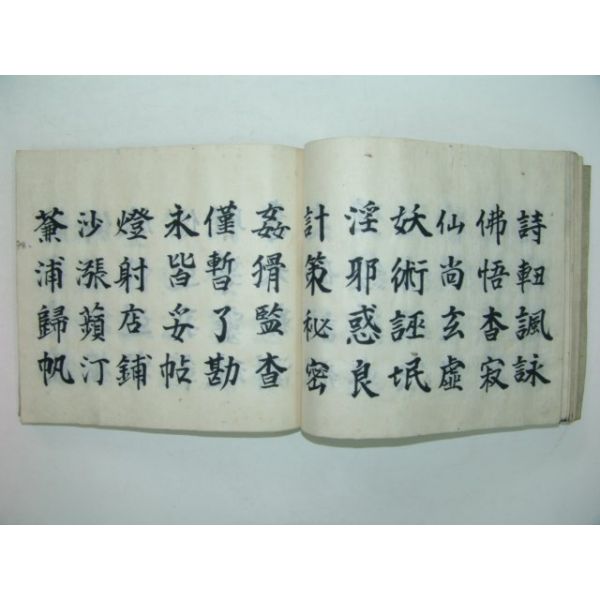 詩軔諷詠
佛悟杳寂
仙尚玄虛
妖術誣氓
淫耶惑良
計策秘密
姦猾監查
僅暫了勘
永皆妥帖
燈射店鋪
沙漲蘋汀
蒹浦歸帆